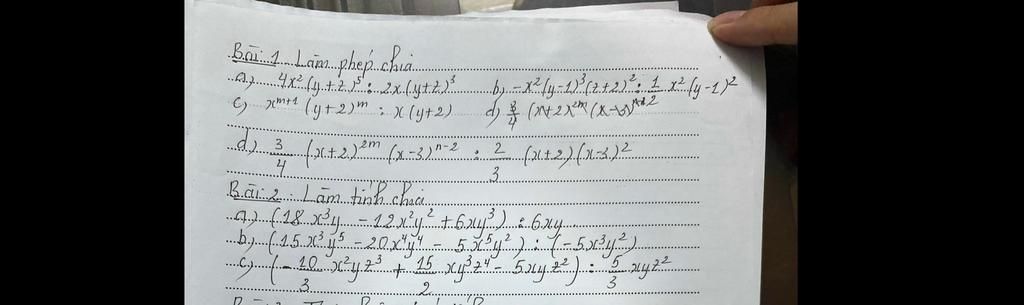 Bài 1 Làm phép chia
a) 4x²(y+z)⁵ : 2x(y+z)³ b) -x²(y-1)³(z+2)² : 1/2 x²(y-1)²
c) x^{m+1} (y+2)^m : x(y+2) d) 3/4 (x+2)^{2m}
d) 3/4 (x+2)^{2m} (x-3)^{n-2} : 2/3 (x+2)(x-3)²
Bài 2 : Làm tính chia
a) (18x³y - 12x²y² + 6xy³) : 6xy
b) (15x³y⁵ - 20x⁴y⁴ - 5x⁵y²) : (-5x³y²)
c) (-10/3 x²yz³ + 15/2 xy³z⁴ - 5xyz²) : 5/3 xyz²